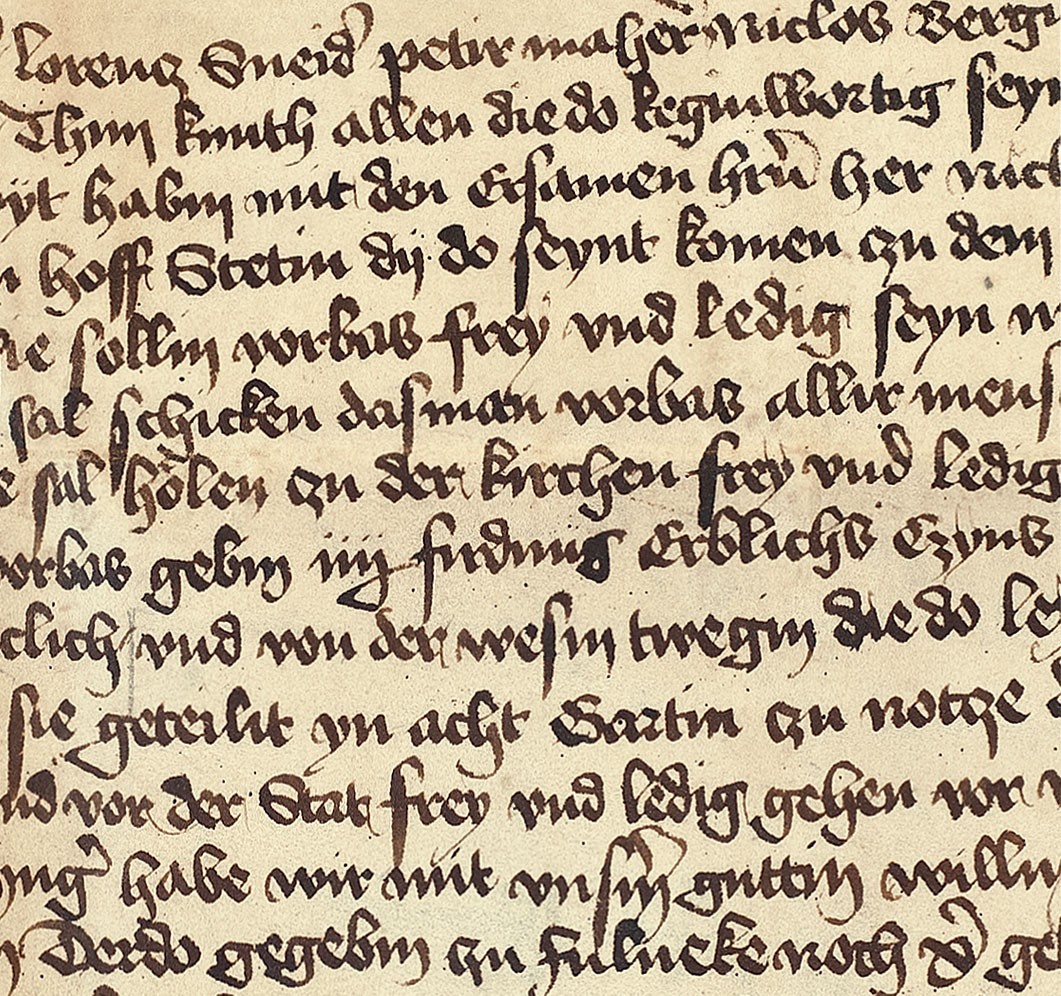 lorencz Sneid' petir maher Niclos Berg
Thun kunth allen die do keginwortig sey
habin mit den Ersamen hrn her Nic
hoff Stetin dy do seynt komen czu dem
sie sollin vorbas frey vnd ledig seyn
sal schicken das man vorbas allir mens
sal holen czu der kirchen frey vnd ledig
vorbas gebin iiij firdung Erblichs Czyns
clich vnd von der wesin twegin die do le
sie geteilit yn acht Gartin czu notcze
nd vor der Stat frey vnd ledig gehen vor
habe wir mit vnsim guttin willin
Der do gegebin czu fulneke noch x' ge